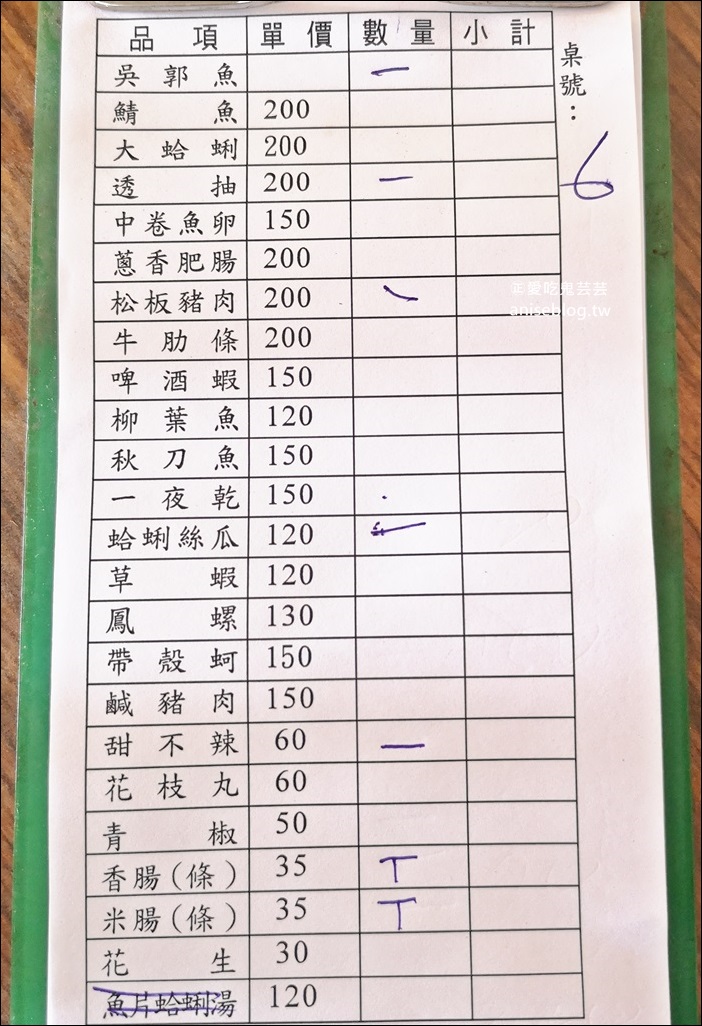 品項 單價 數量 小計
桌號：
6
吳郭魚 一
鯖魚 200
大蛤蜊 200
透抽 200 一
中卷魚卵 150
蔥香肥腸 200
松板豬肉 200 一
年愛吃鬼芸芸
aniseblog.tw
牛肋條 200
啤酒蝦 150
柳葉魚 120
秋刀魚 150
一夜乾 150
蛤蜊絲瓜 120 一
草蝦 120
鳳螺 130
帶殼蚵 150
鹹豬肉 150
甜不辣 60 一
花枝丸 60
青椒 50
香腸(條) 35 T
米腸(條) 35 T
花生 30
魚片蛤蜊湯 120